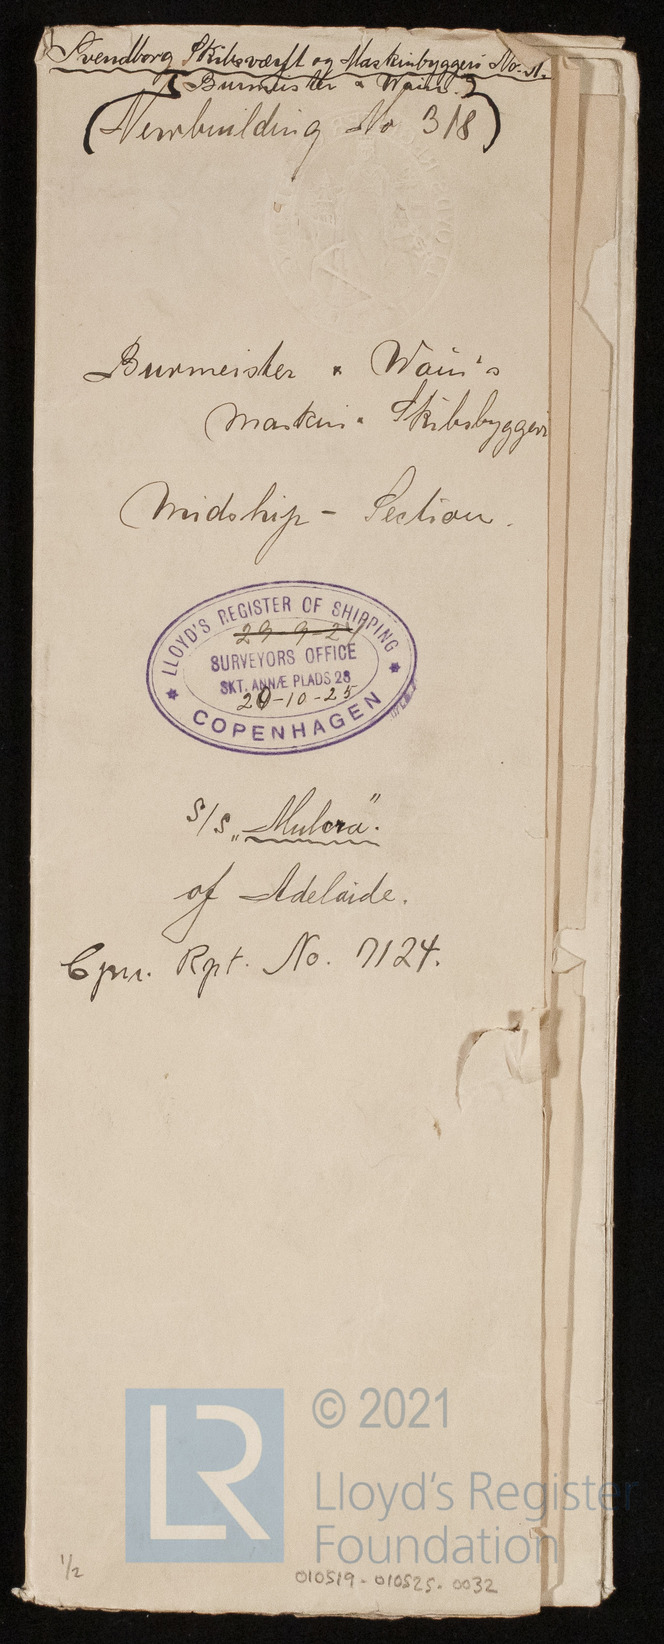 Svendborg Skibsværft og Maskinbyggeri No.
(Burmeister & Wain.)
(Newbuilding No 318)
Burmeister & Wain's
Maskin & Skibsbyggeri
Midship - Section.
LLOYD'S REGISTER OF SHIPPING
29-9-24
SURVEYORS OFFICE
SKT. ANNÆ PLADS 28
20-10-25
COPENHAGEN
S/S „Mulcra".
of Adelaide.
Cpn. Rpt. No. 7124.
LR
© 2021
Lloyd's Register
Foundation
1/2
010519-010525-0032